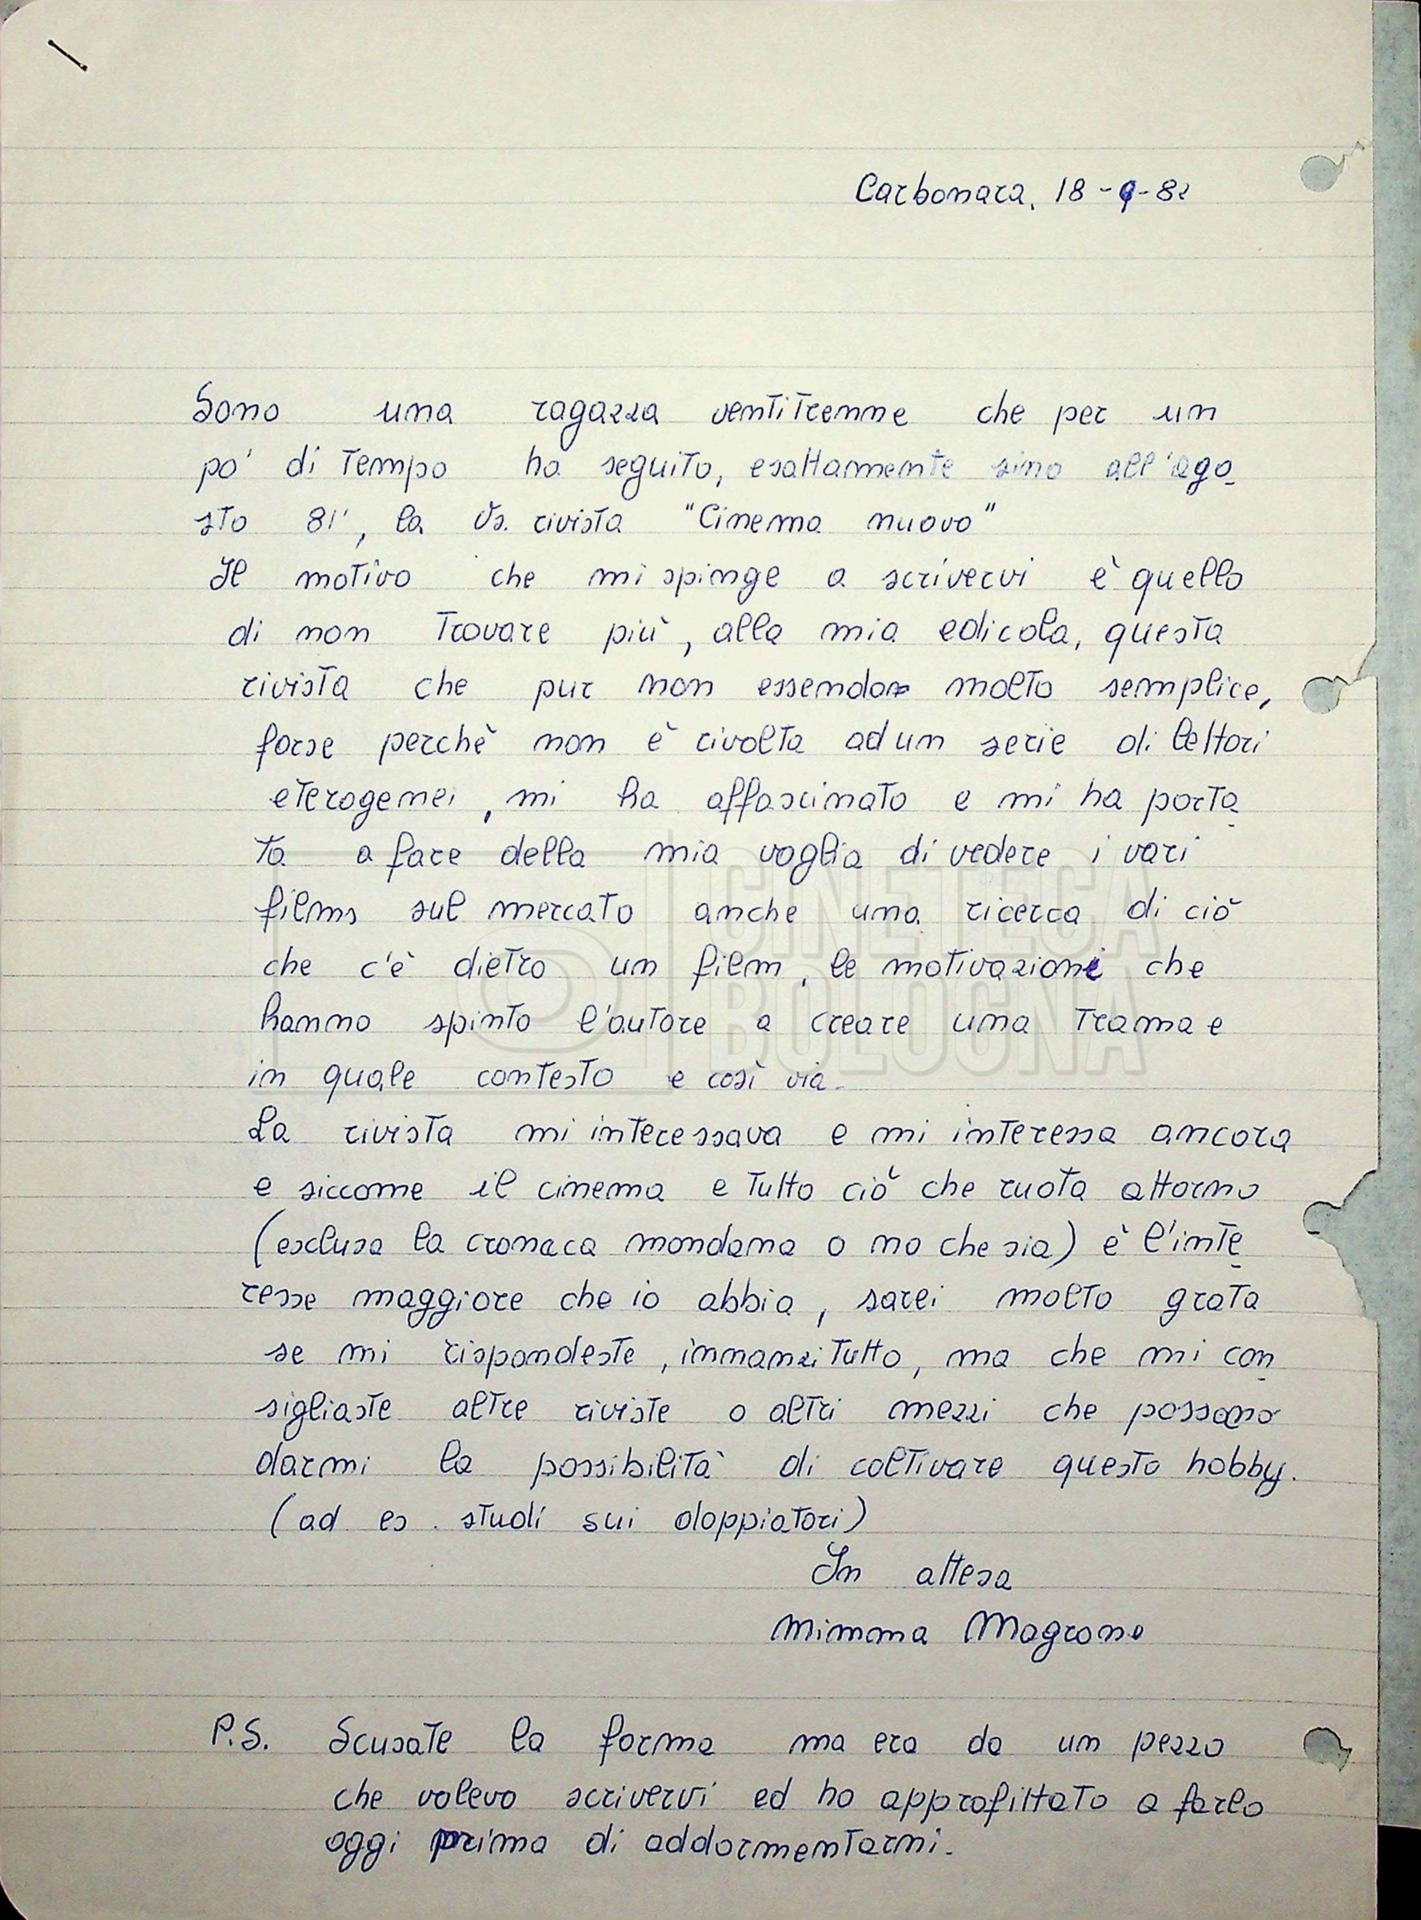 Carbonara, 18-9-82
Sono una ragazza ventitrenne che per un
po' di tempo ha seguito, esattamente sino all'ago_
sto 81', la Vs. rivista "Cinema nuovo"
Il motivo che mi spinge a scrivervi è quello
di non trovare più, alla mia edicola, questa
rivista che pur non essendo molto semplice,
forse perchè non è rivolta ad un serie di lettori
eterogenei, mi ha affascinato e mi ha porta_
ta a fare della mia voglia di vedere i vari
films sul mercato anche una ricerca di ciò
che c'è dietro un film, le motivazioni che
hanno spinto l'autore a creare una trama e
in quale contesto e così via.
La rivista mi interessava e mi interessa ancora
e siccome il cinema e tutto ciò che ruota attorno
(esclusa la cronaca mondana o no che sia) è l'inte_
resse maggiore che io abbia, sarei molto grata
se mi rispondeste, innanzitutto, ma che mi con_
sigliaste altre riviste o altri mezzi che possano
darmi la possibilità di coltivare questo hobby.
(ad es. studi sui doppiatori)
In attesa
Mimma Magrone
P.S. Scusate la forma ma era da un pezzo
che volevo scrivervi ed ho approfittato a farlo
oggi prima di addormentarmi.
CINETECA
BOLOGNA